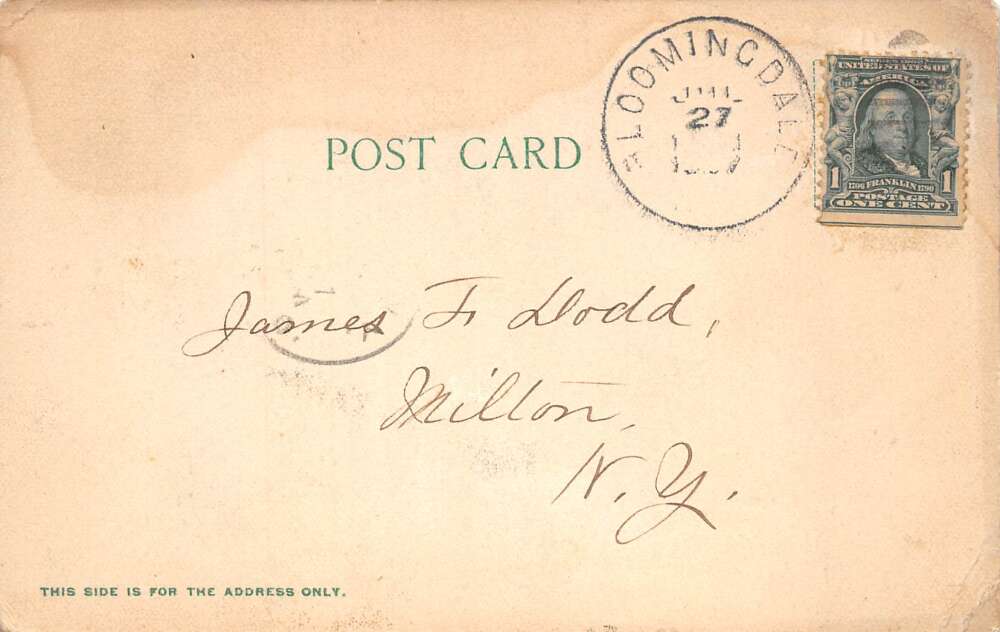 BLOOMINGDALE
27
SERIES 1902
UNITED STATES OF
AMERICA
1 1706 FRANKLIN 1790 1
POSTAGE
ONE CENT
POST CARD
James F. Dodd,
Milton,
N. Y.
THIS SIDE IS FOR THE ADDRESS ONLY.